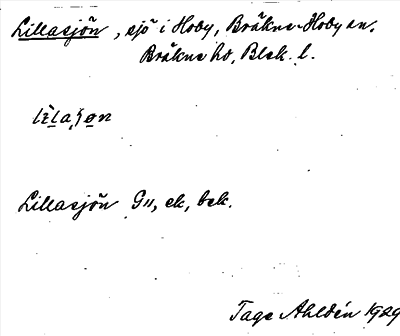 Lillasjön, sjö i Hoby, Bräkne-Hoby sn.
Bräkne hd, Blek. l.
Lillasjön G11, ek, bek.
Tage Ahldén 1929